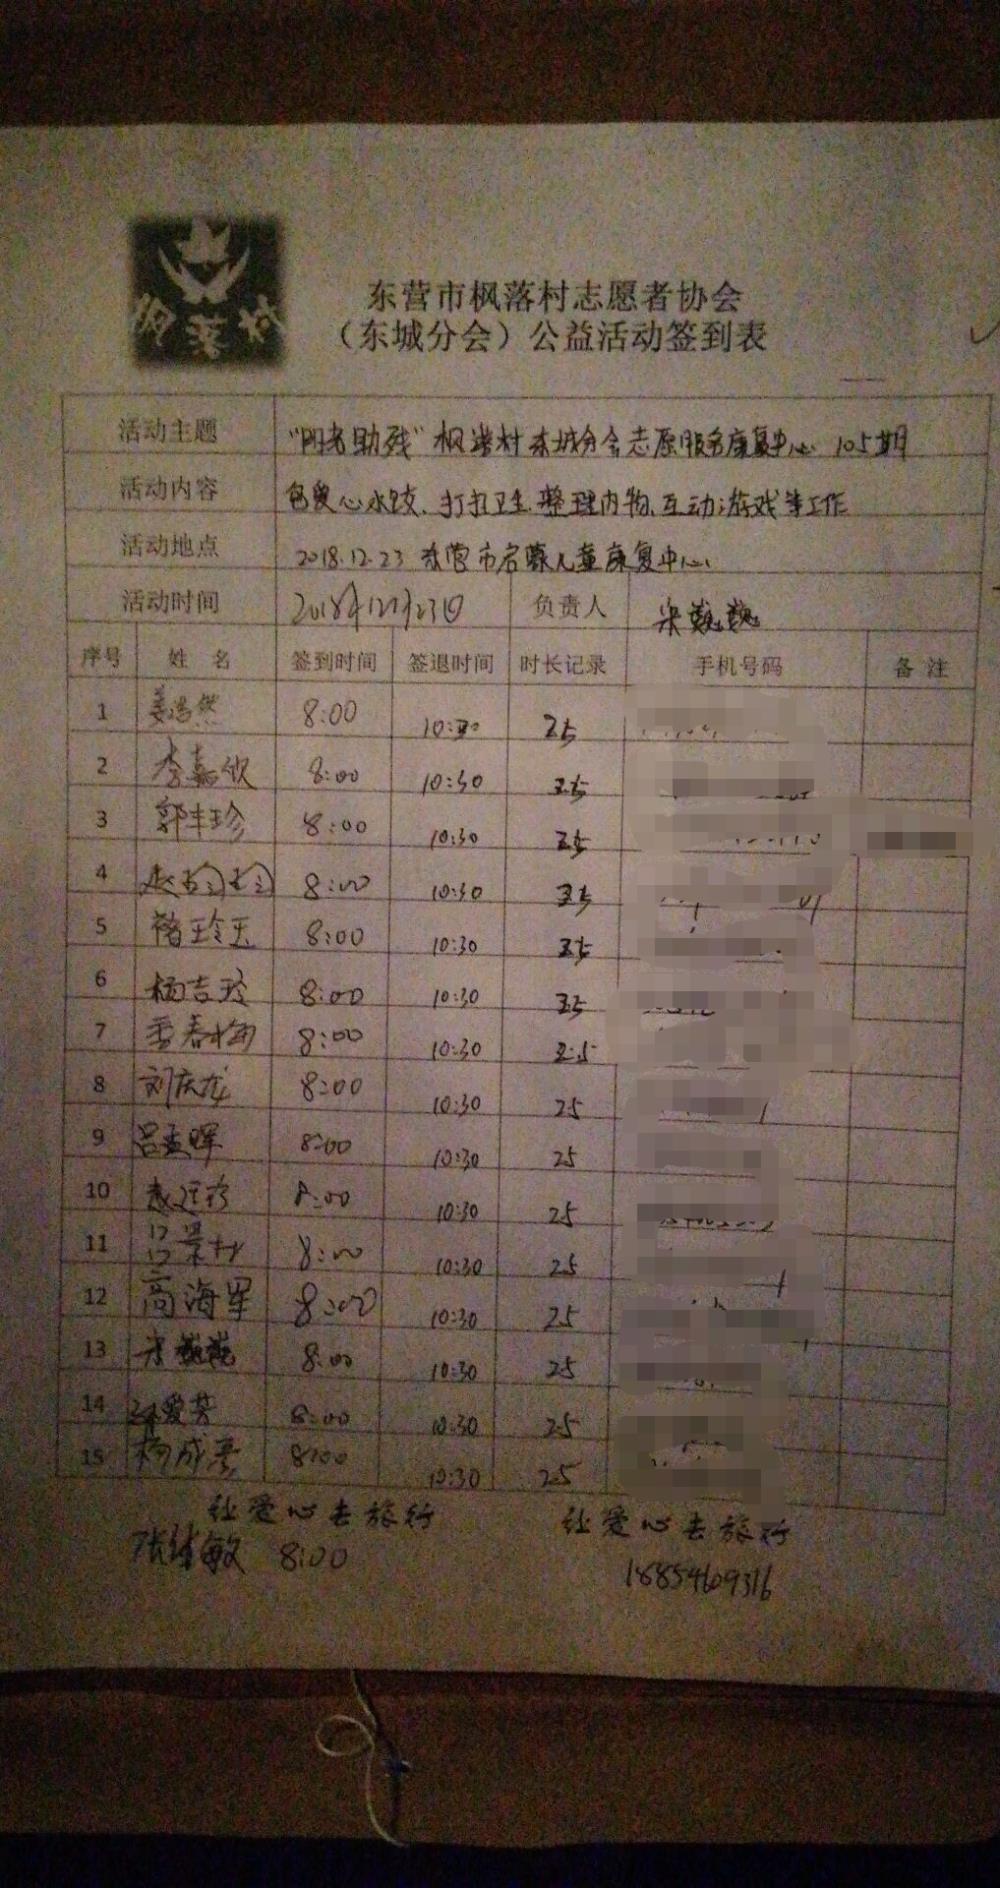 枫落村
东营市枫落村志愿者协会
（东城分会）公益活动签到表
活动主题 助残" 枫落村东城分会志愿服务康复中心 105期
活动内容 包爱心水饺、打扫卫生、整理内物、互动游戏等工作
活动地点 2018.12.23 东营市启蒙儿童康复中心
活动时间 2018年12月23日 负责人 宋巍巍
序号 姓 名 签到时间 签退时间 时长记录 手机号码 备 注
1 姜浩然 8:00 10:30 2.5
2 李嘉欣 8:00 10:30 2.5
3 郭丰珍 8:00 10:30 2.5
4 8:00 10:30 2.5
5 褚玲玉 8:00 10:30 2.5
6 杨吉玲 8:00 10:30 2.5
7 季春梅 8:00 10:30 2.5
8 刘庆龙 8:00 10:30 25
9 吕孟晖 8:00 10:30 25
10 8:00 10:30 25
11 8:00 10:30 25
12 高海军 8:00 10:30 25
13 宋巍巍 8:00 10:30 25
14 爱芳 8:00 10:30 25
15 杨成 8:00 10:30 2.5
让爱心去旅行 让爱心去旅行
敏 8:00 18854609316